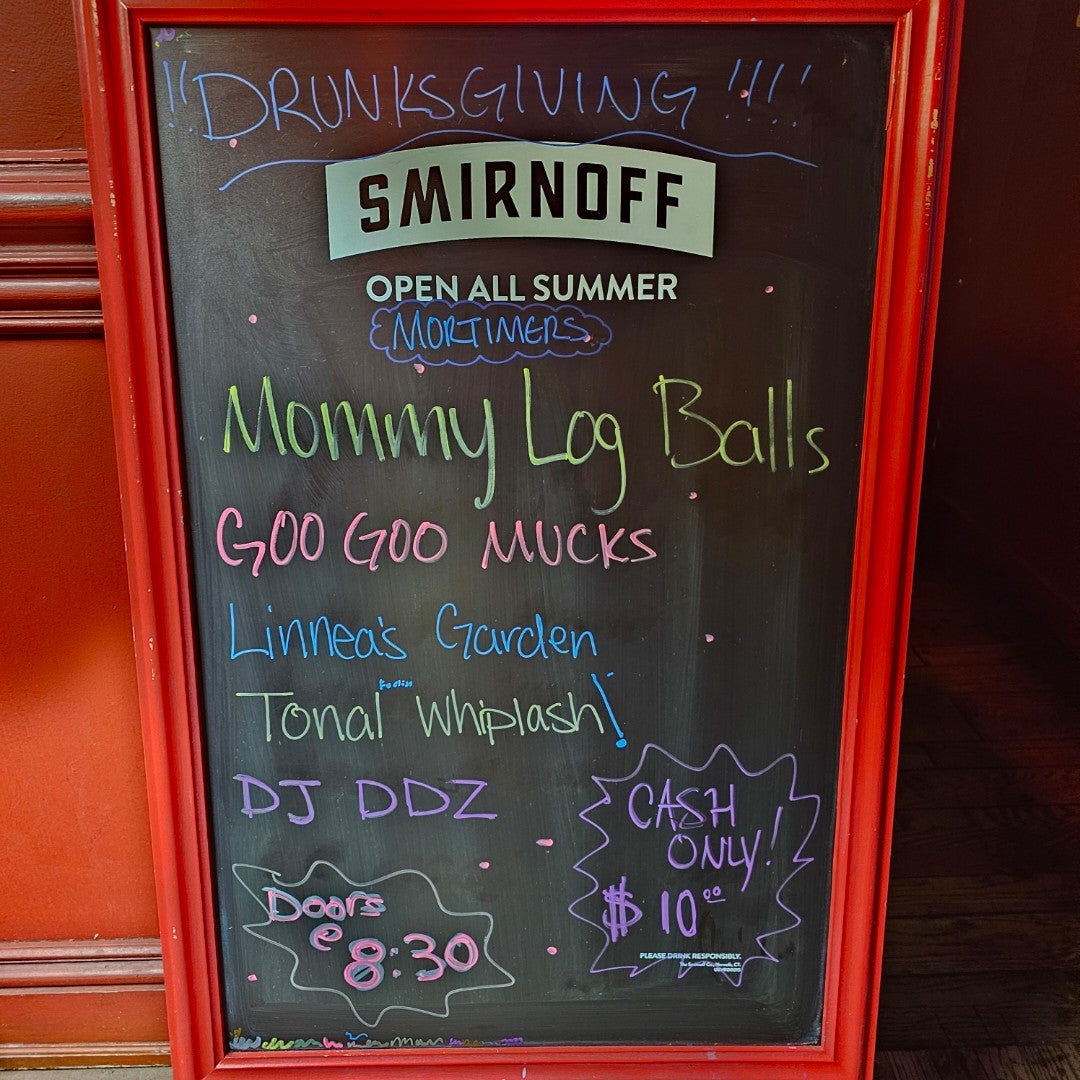 !!DRUNKSGIVING!!!!
SMIRNOFF
OPEN ALL SUMMER
MORTIMERS
Mommy Log Balls
GOO GOO MUCKS
Linnea's Garden
Tonal Whiplash!
DJ DDZ
CASH
ONLY!
$10.00
Doors
@
8:30
PLEASE DRINK RESPONSIBLY.
The Smirnoff Co., Norwalk, CT.